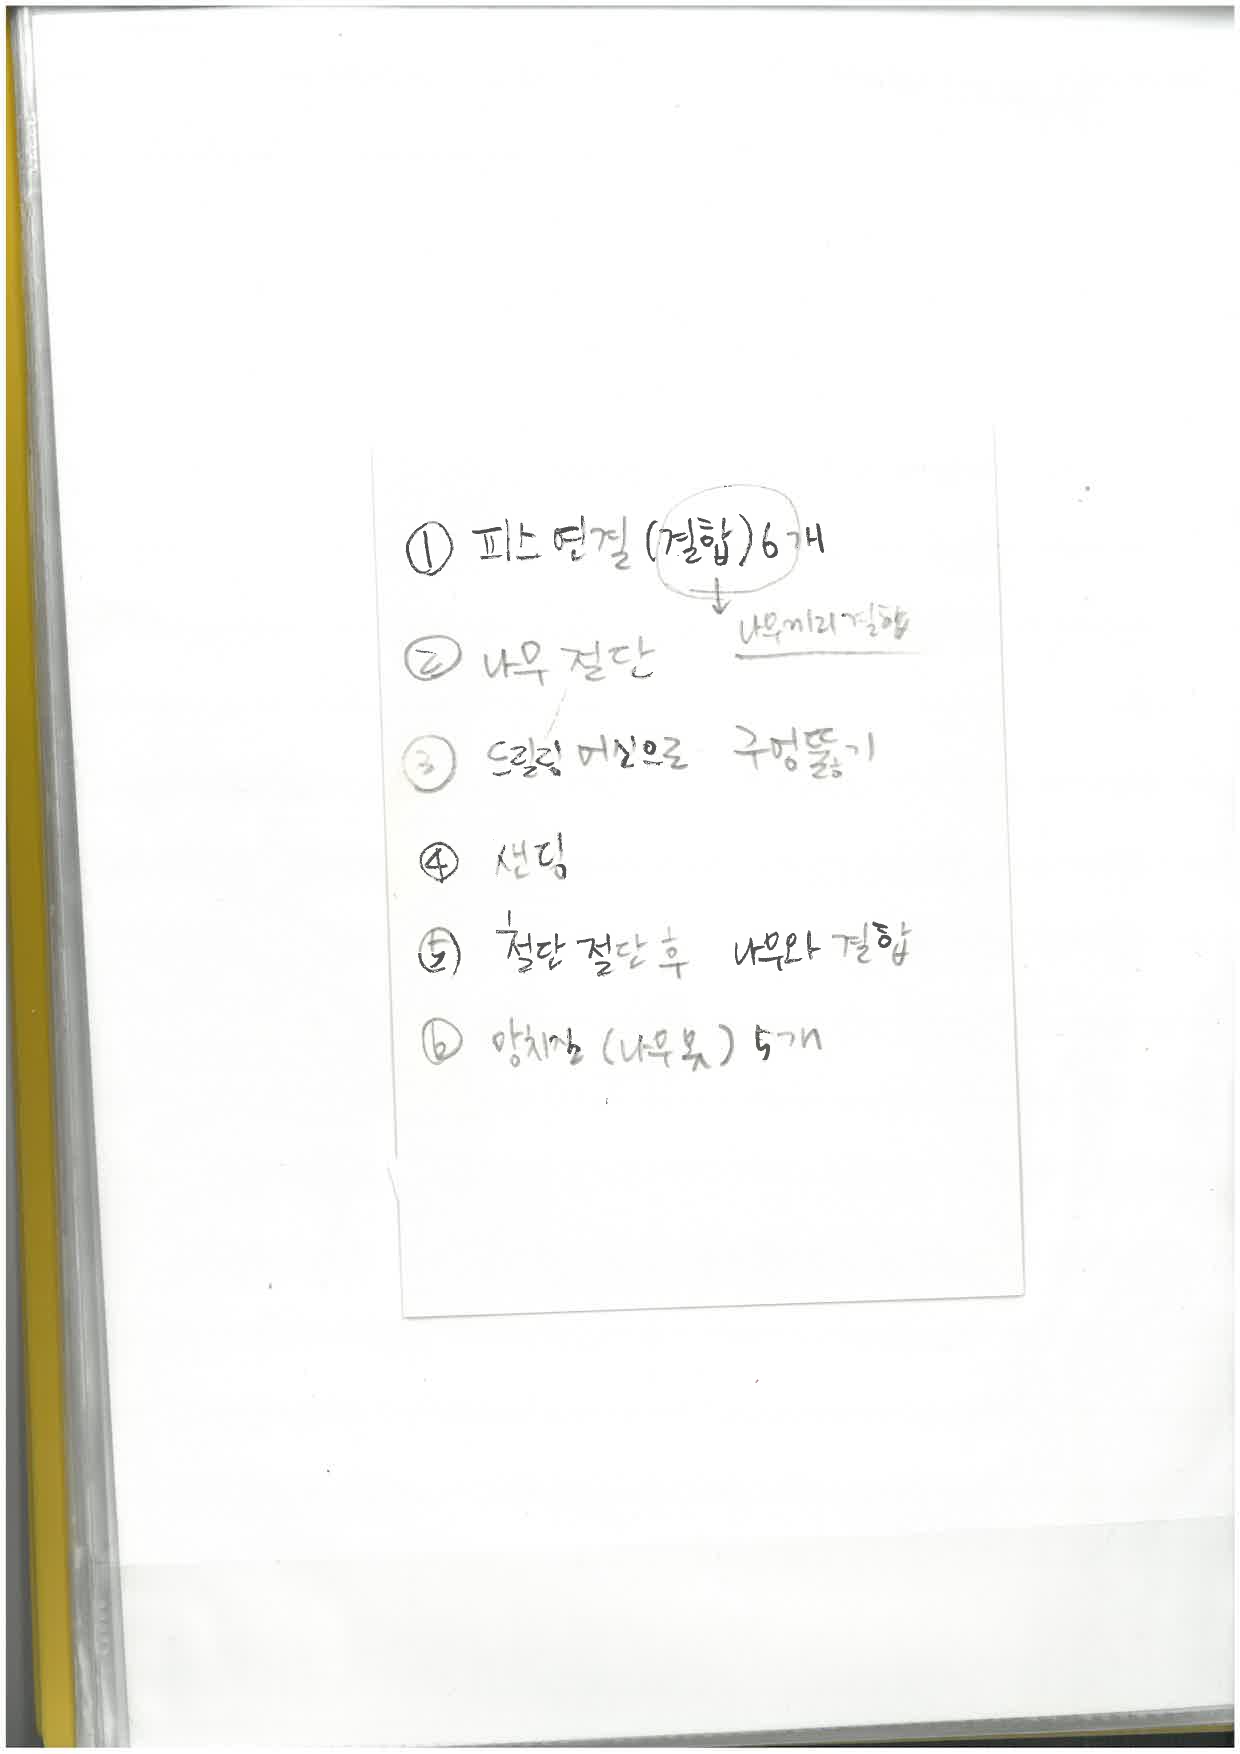 ① 피스 연결 (결합) 6개
↓ 나무끼리 결합
② 나무 절단
③ 드릴링 머신으로 구멍뚫기
④ 샌딩
⑤ 철단 절단 후 나무와 결합
⑥ 망치질 (나무못) 5개